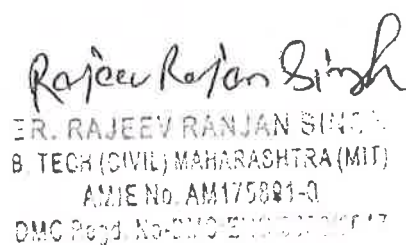 Rajeev Ranjan Singh
ER. RAJEEV RANJAN SINGH
B. TECH (CIVIL) MAHARASHTRA (MIT)
AMIE No. AM175891-0
DMC Regd. No-DMC-E